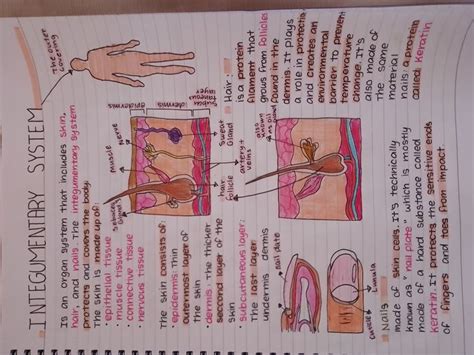 INTEGUMENTARY SYSTEM
Is an organ system that includes skin,
hair, and nails. The integumentary system
protects and covers the body.
The skin is made up of:
• epithelial tissue
• muscle tissue
• connective tissue
• nervous tissue
The skin consists of:
• epidermis: thin
outermost layer of
the skin
• dermis: the thicker
second layer of the
skin
• subcutaneous layer:
The last layer
underneath dermis
The outer
covering
epidermis
dermis
subcutaneous
layer
muscle
Nerve
Sebaceous
Gland
Sweat
Gland
artery +
veins
hair
follicle
also
known
as oil gland
Hair:
is a protein
filament that
grows from follicles
found in the
dermis. It plays
a role in protects
and creates an
environmental
barrier to prevent
temperature
change. It's
also made of
the same
material as
nails: a protein
called Keratin
nail plate
cuticle
Lunula
Nails
made of skin cells. It's technically
known as "nail plate" which is mostly
made of a hard substance called
Keratin. It protects the sensitive ends
of fingers and toes from impact.